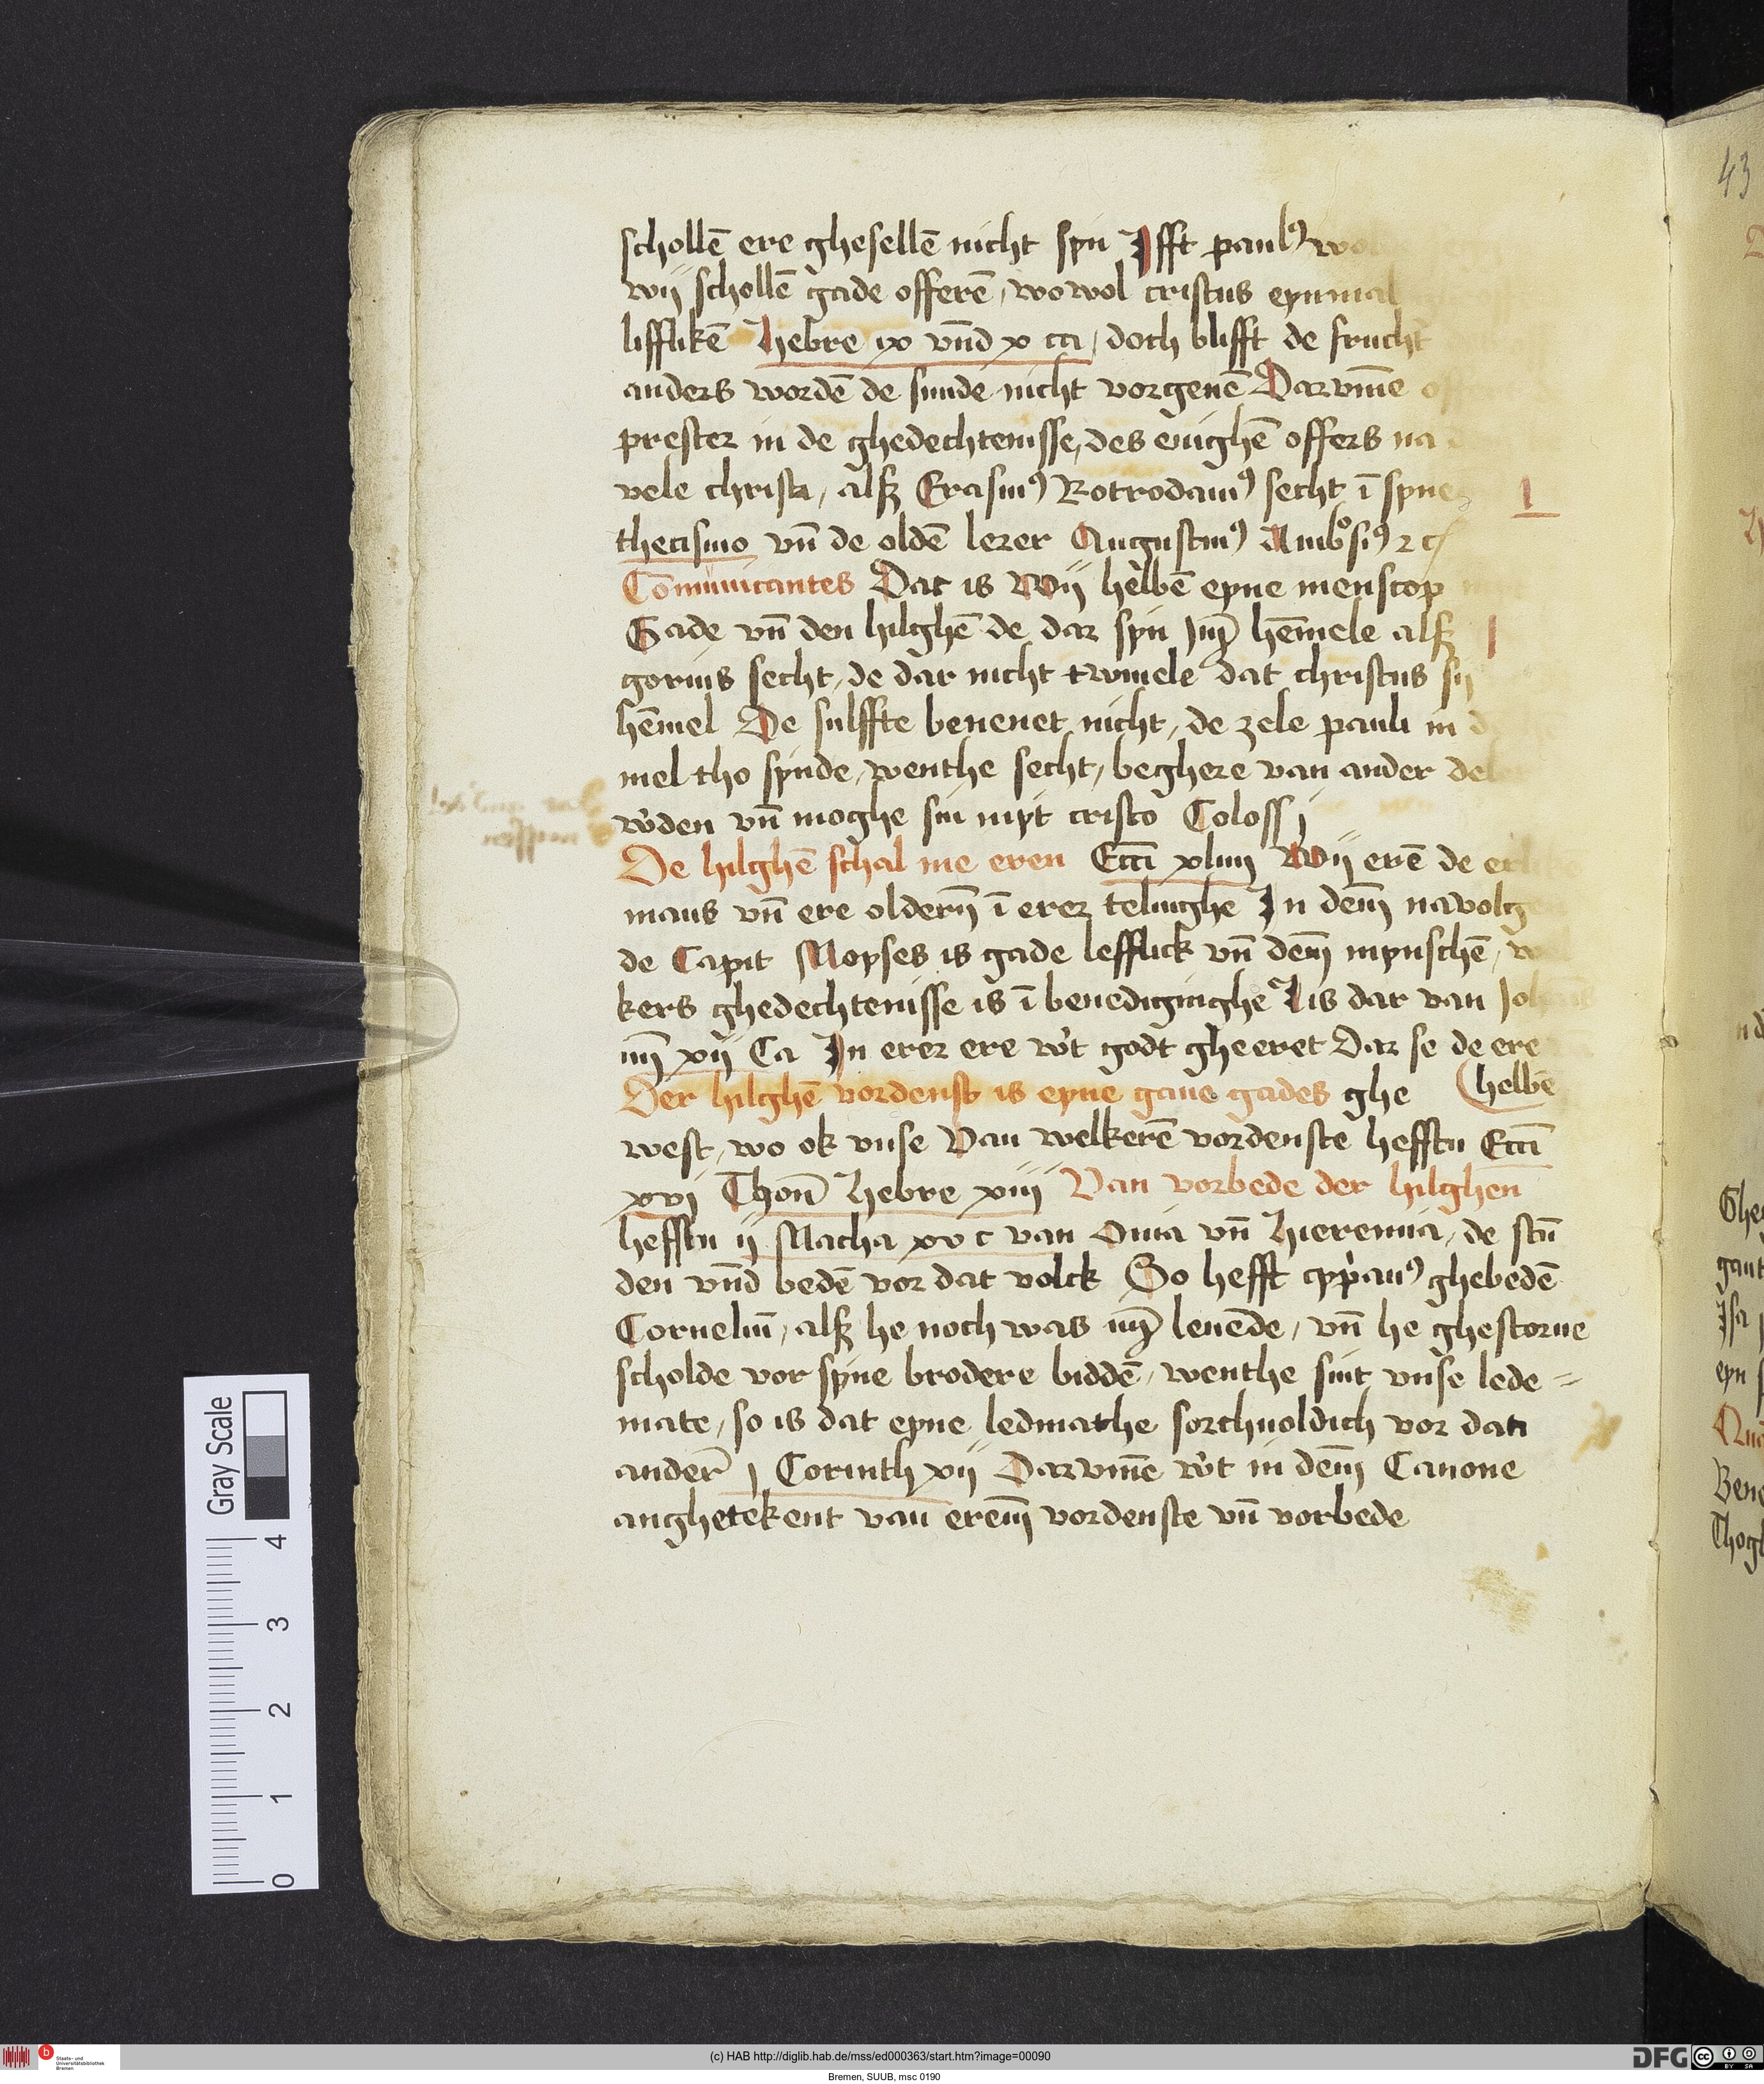 schollē ere ghesellē nicht syn Jfft paulꝰ
wij schollē gade offerē, wo wol cristus eynmal
lifflikē Hebre ix vn̄d x cci, doch blifft de frucht
anders wordē de sunde nicht vorgeuē Darvm̄e
prester in de ghedechtenisse, des ewighē offers na
vele christi, alsz Erasmꝰ Rotrodamꝰ secht ī syne
thecismo vn̄ de oldē lerer Augustinꝰ Ambosiꝰ ⁊c
Com̄unicantes Dat is Wij hebbē eyne menscop
Gade vn̄ den hilghē de dar syn jm̄ hēmele alsz
gorius secht, de dar nicht twiuele dat christus sij
hēmel De sulffte beneuet nicht, de zele pauli in
mel tho synde, wenthe secht, beghere van ander
wͦden vn̄ moghe sin myt cristo Coloss j
De hilghē schal me eren Ecci xliiij Wij erē de
maus vn̄ ere oldern̄ ī erer telinghe Jn dem̄ navolg
de Capit Moyses is gade lefflick vn̄ dem̄ mynschē,
kers ghedechtenisse is ī benediginghe Jis dar van Joh
xij Ca Jn erer ere wͦt godt gheeret Dar se de ere
Der hilghē vordenst is eyne gaue gades ghe (hebbē
west, wo ok vnse Van welkerē vordenste hefftu Ecci
xvj Thom̄ Hebre xiij Van vorbede der hilghen
hefftu ij Macha xv c van Onia vn̄ Hieremia, de stū
den vn̄d bedē vor dat volck So hefft cyp̄anꝰ ghebedē
Corneliū, alsz he noch was im̄ leuēde, vn̄ he ghestorue
scholde vor syne brodere biddē, wenthe sint vnse lede =
mate, so is dat eyne ledmathe sorchuoldich vor dat
ander j Corinth xij Darvm̄e wͦt in dem̄ Canone
anghetekent van erem̄ vordenste vn̄ vorbede
43
Gray Scale
4
3
2
1
0
Staats- und
Universitätsbibliothek
Bremen
(c) HAB http://diglib.hab.de/mss/ed000363/start.htm?image=00090
DFG
cc BY SA
Bremen, SUUB, msc 0190